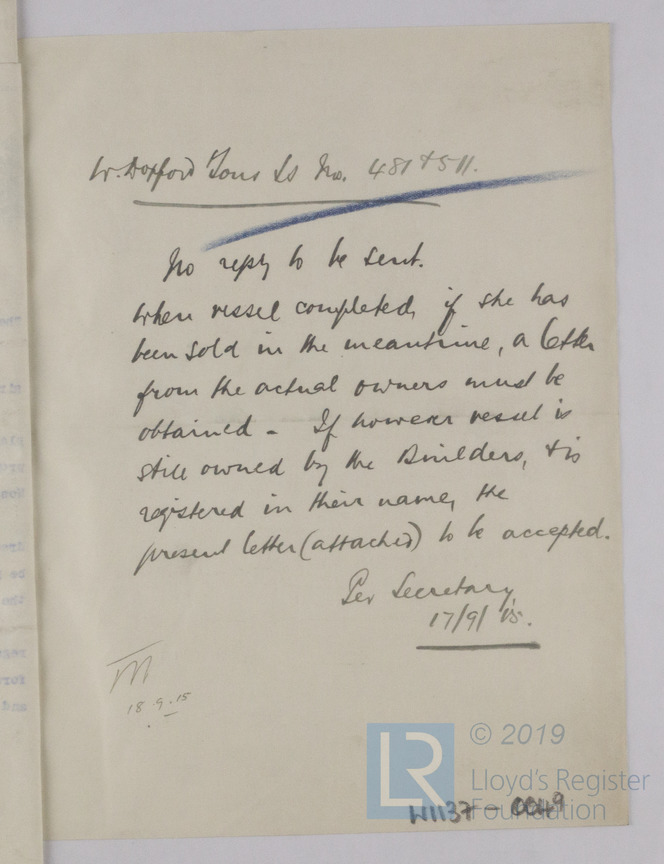 W. Doxford & Sons Ld No. 481 & 511.
No reply to be sent.
When vessel completed, if she has
been sold in the meantime, a letter
from the actual owners must be
obtained - If however vessel is
still owned by the Builders, & is
registered in their name, the
present letter (attached) to be accepted.
Per Secretary
17/9/15.
18.9.15
LR
© 2019
Lloyd's Register
Foundation
W1137-0049